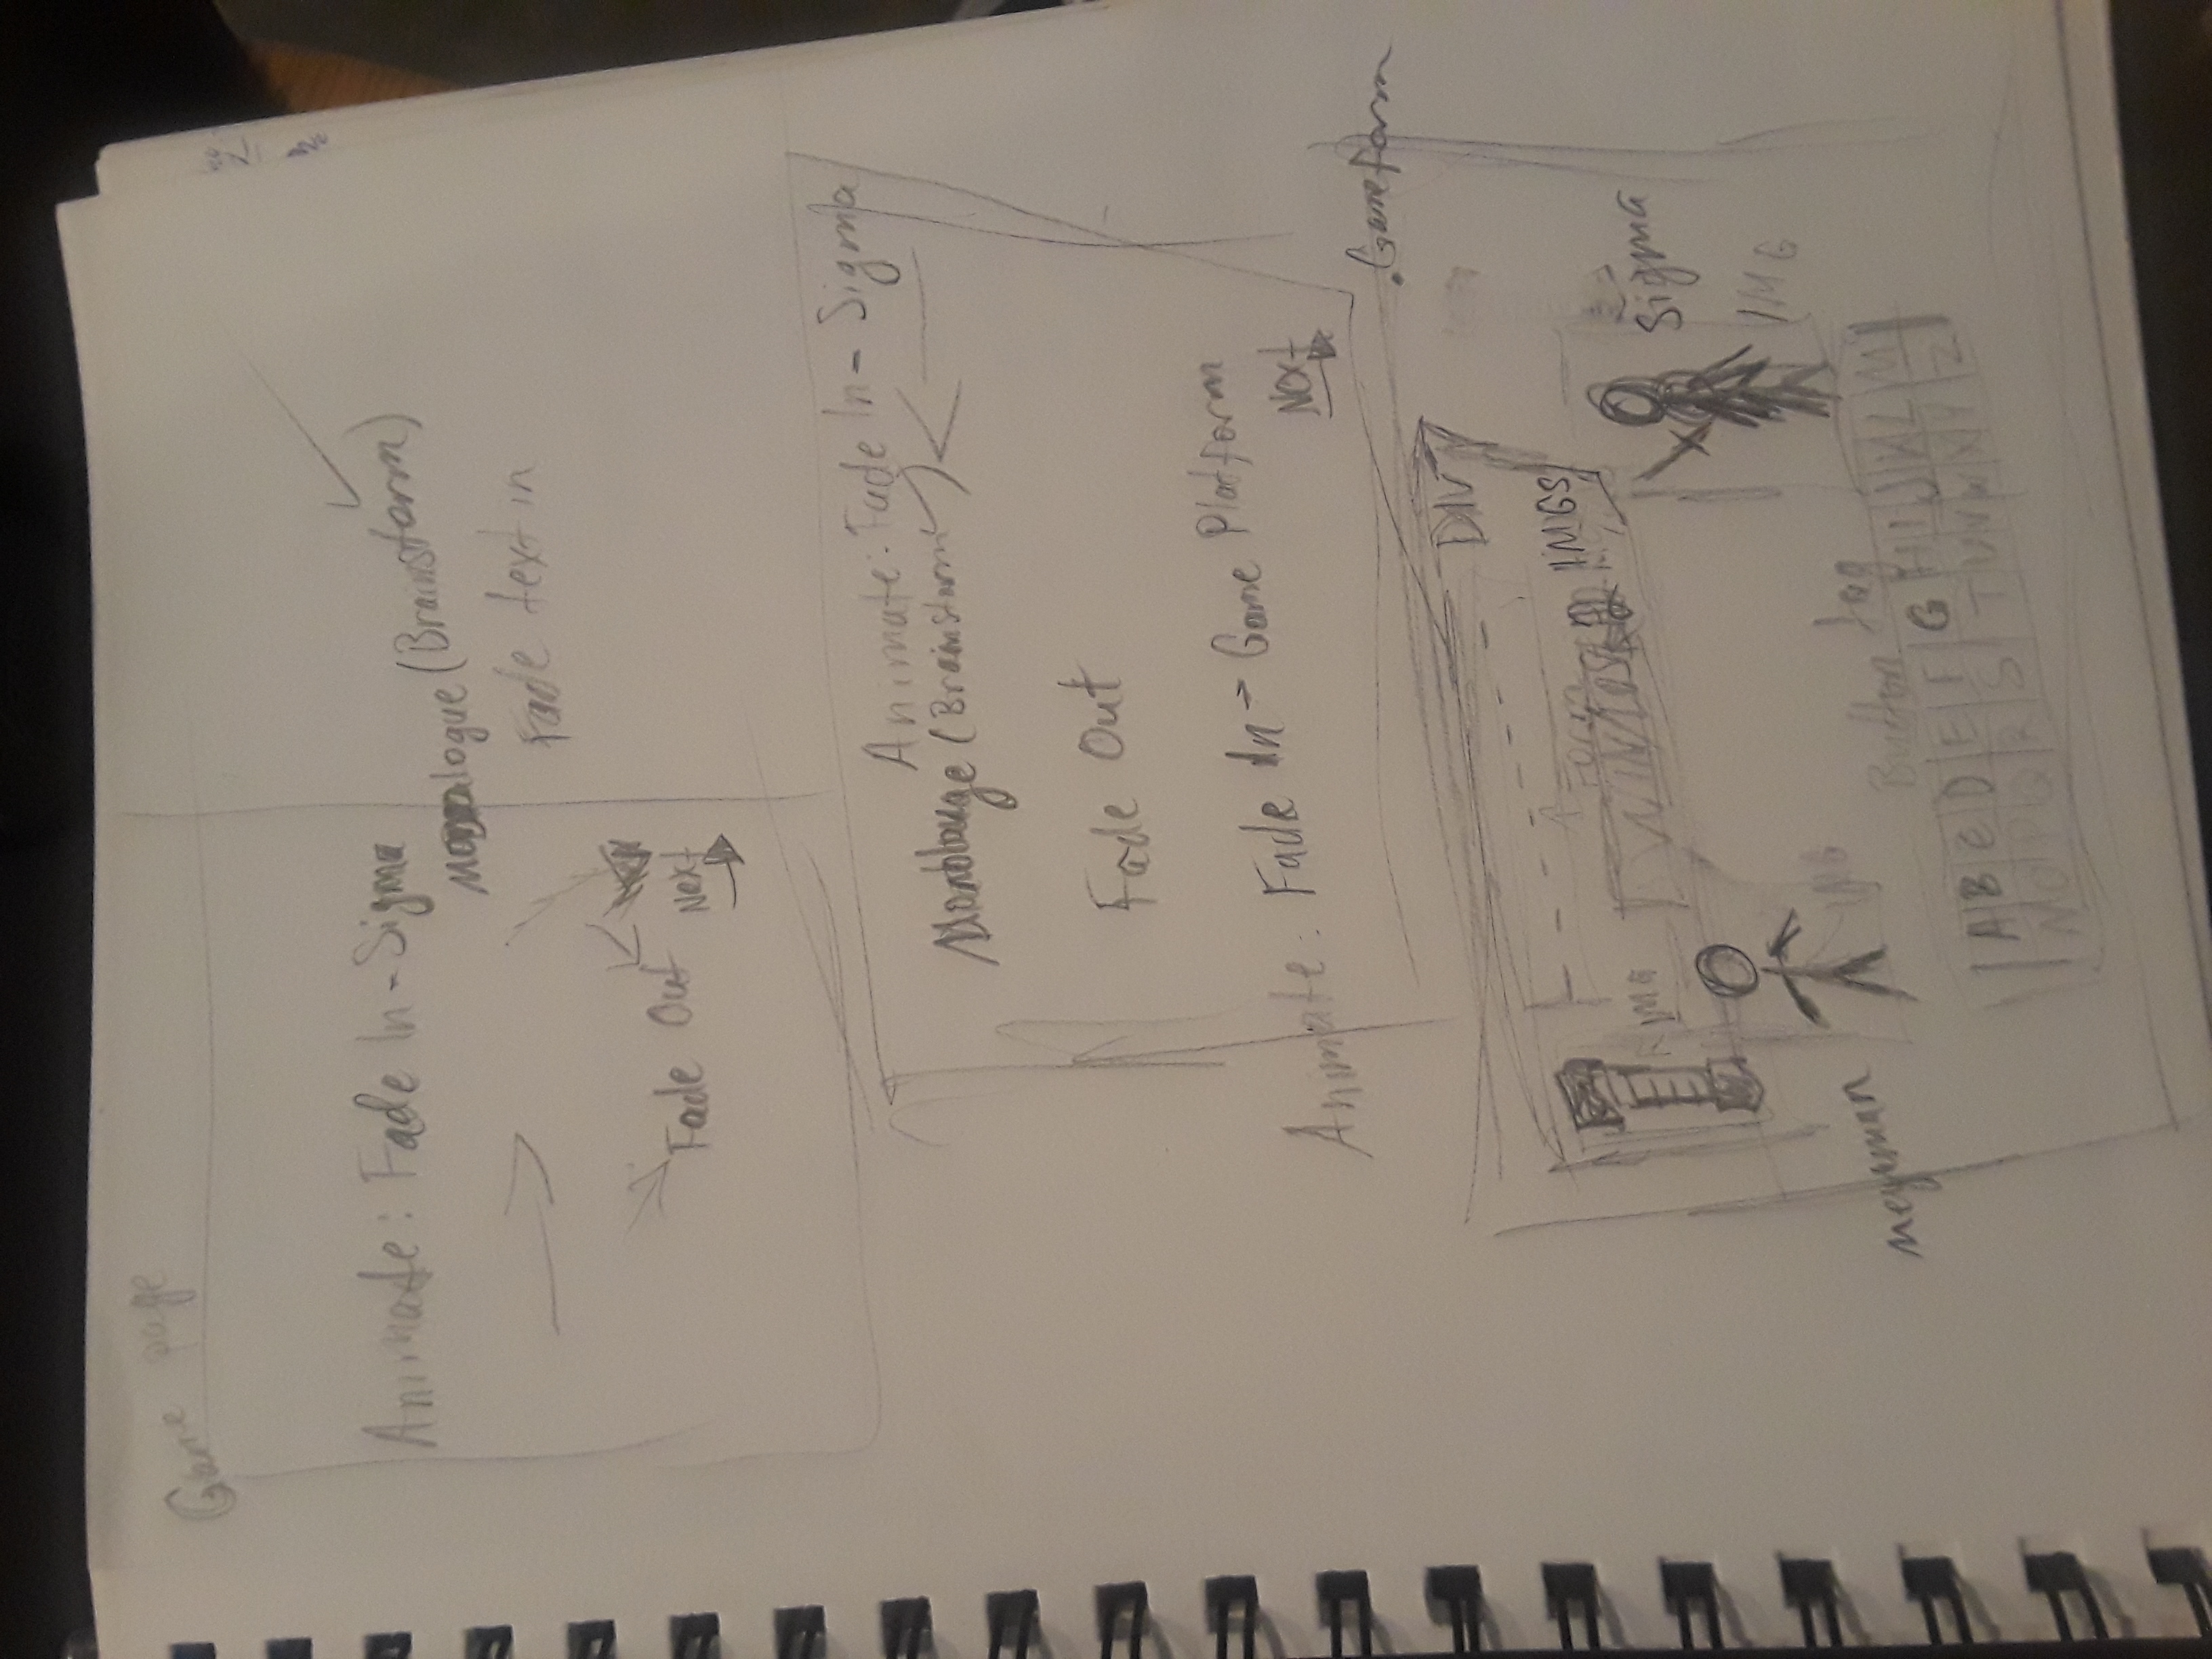 Game page
Animate: Fade In - Sigma
Monologue (Brainstorm)
Fade text in
Fade Out
Next
Animate: Fade In - Sigma
Monologue (Brainstorm)
Fade Out
Animate: Fade In - Game Platform
Next
.Gameform
DIV
IMG
IMGS
Sigma
IMG
megaman
IMG
Button tag
A B C D E F G H I J K L M
N O P Q R S T U V W X Y Z